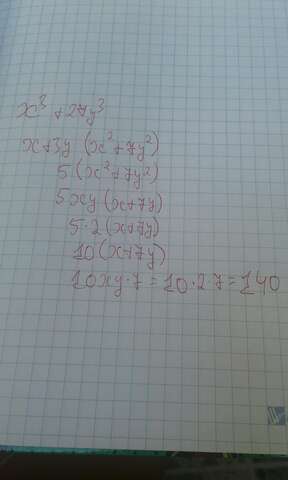 x³ + 27y³
x+3y (x²+7y²)
5 (x²+7y²)
5xy (x+7y)
5·2 (x+7y)
10 (x+7y)
10xy·7 = 10·2 7 = 140